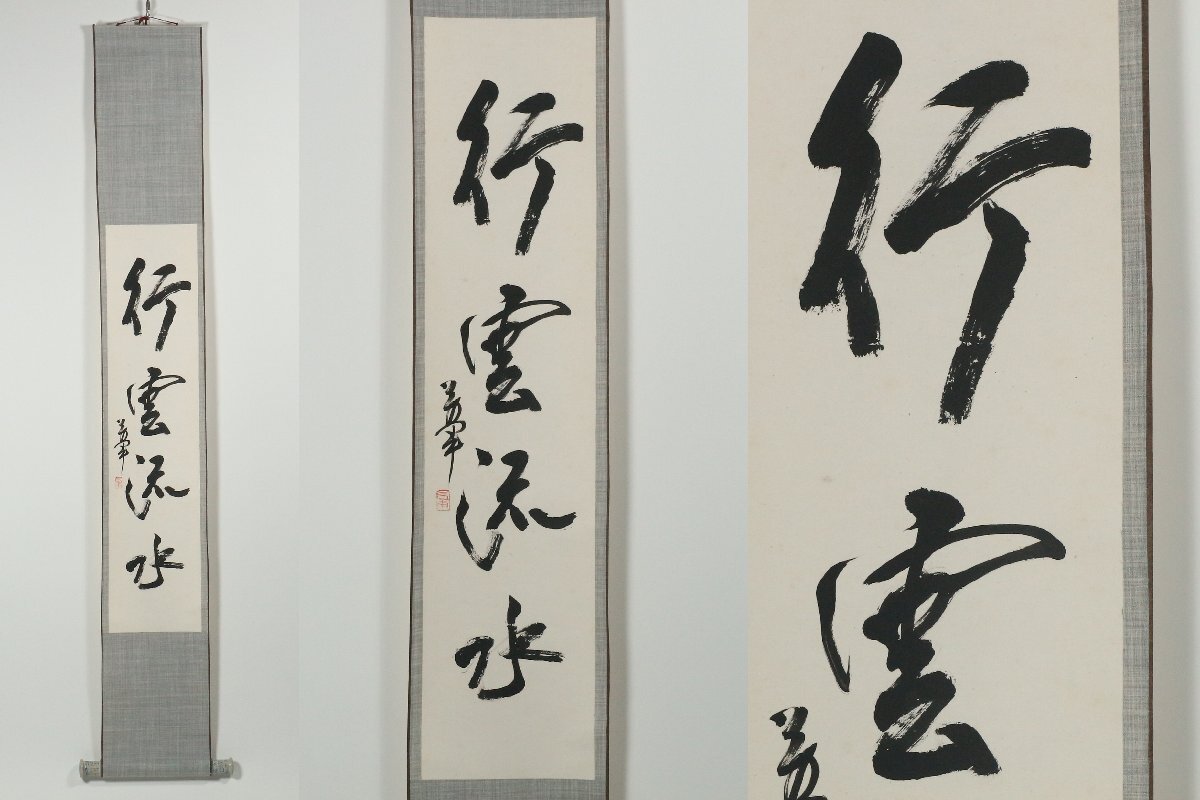 行雲流水
行雲流水
行雲